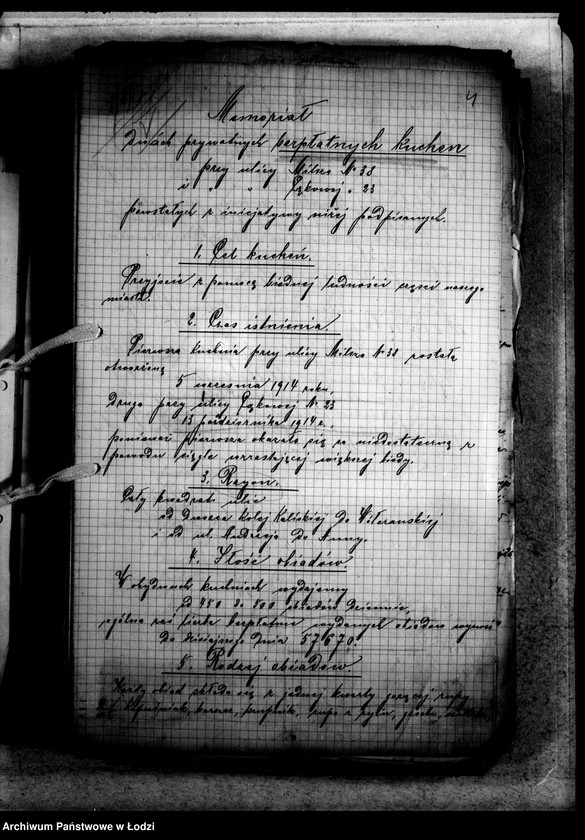 4
Memoriał
dwóch prywatnych bezpłatnych kuchen
przy ulicy Milsza № 38
i " " Łąkowej " 23
powstałych z inicjatywy niżej podpisanych.
1. Cel kucheń.
Przyjście z pomocą biednej ludności części naszego
miasta.
2. Czas istnienia.
Pierwsza kuchnia przy ulicy Milsza № 38 została
otworzoną
5 września 1914 roku,
druga przy ulicy Łąkowej № 23
15 października 1914 r.,
ponieważ pierwsza okazała się za niedostateczną z
powodu ciągle wzrastającej większej biedy.
3. Rayon.
Cały kwadrat ulic
od Dworca kolej Kaliskiej do Wólczańskiej
i od ul. Andrzeja do Anny.
4. Ilość obiadów.
W obydwuch kuchniach wydajemy
od 450 do 500 obiadów dziennie,
ogólna zaś liczba bezpłatnie wydanych obiadów wynosi
do dzisiejszego dnia 57670.
5. Rodzaj obiadów
Każdy obiad składa się z jednej kwarty gorącej zupy
kapuśniak, barszcz, krupnik, zupa z ryżu, grochu,
Archiwum Państwowe w Łodzi